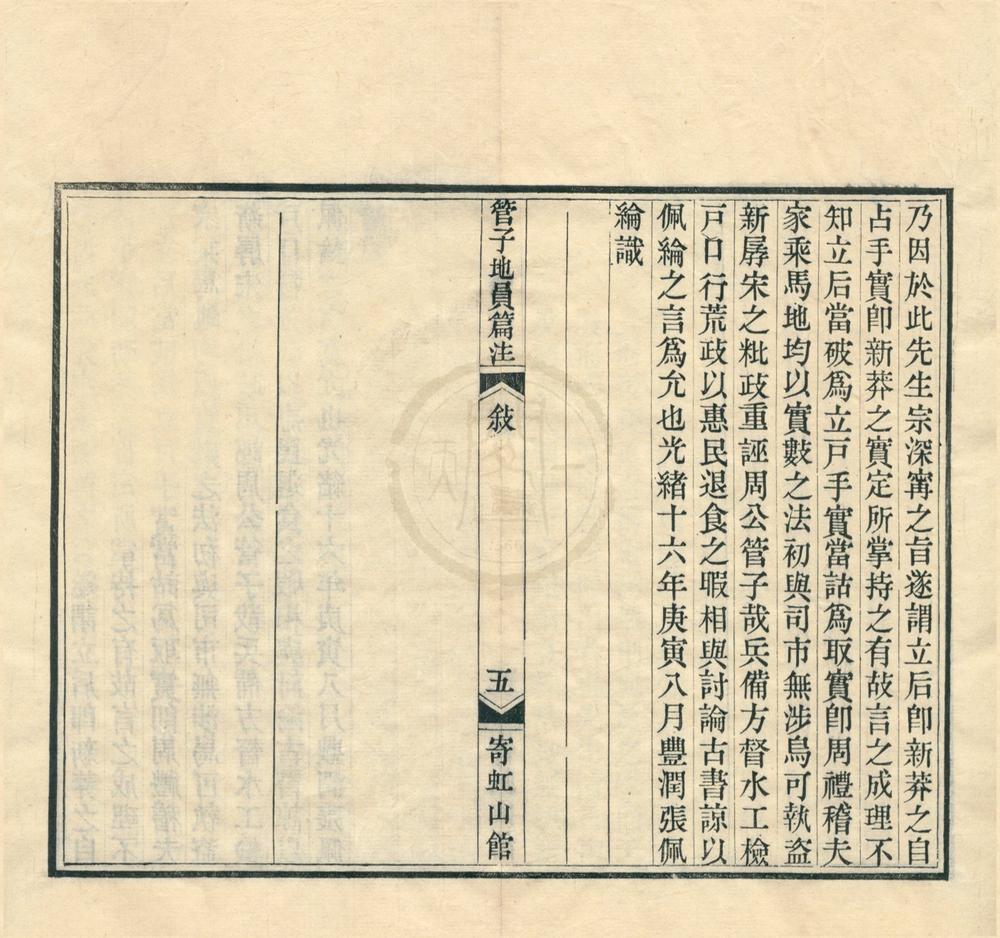 乃因於此先生宗深寗之旨遂謂立后卽新莽之自
占手實卽新莽之實定所掌持之有故言之成理不
知立后當破爲立戸手實當詁爲取實卽周禮稽夫
家乘馬地均以實數之法初與司市無涉烏可執盗
新孱宋之粃政重誣周公管子哉兵備方督水工檢
戸口行荒政以惠民退食之暇相與討論古書諒以
佩綸之言爲允也光緒十六年庚寅八月豐潤張佩
綸識
管子地員篇注
敍
五
寄虹山館